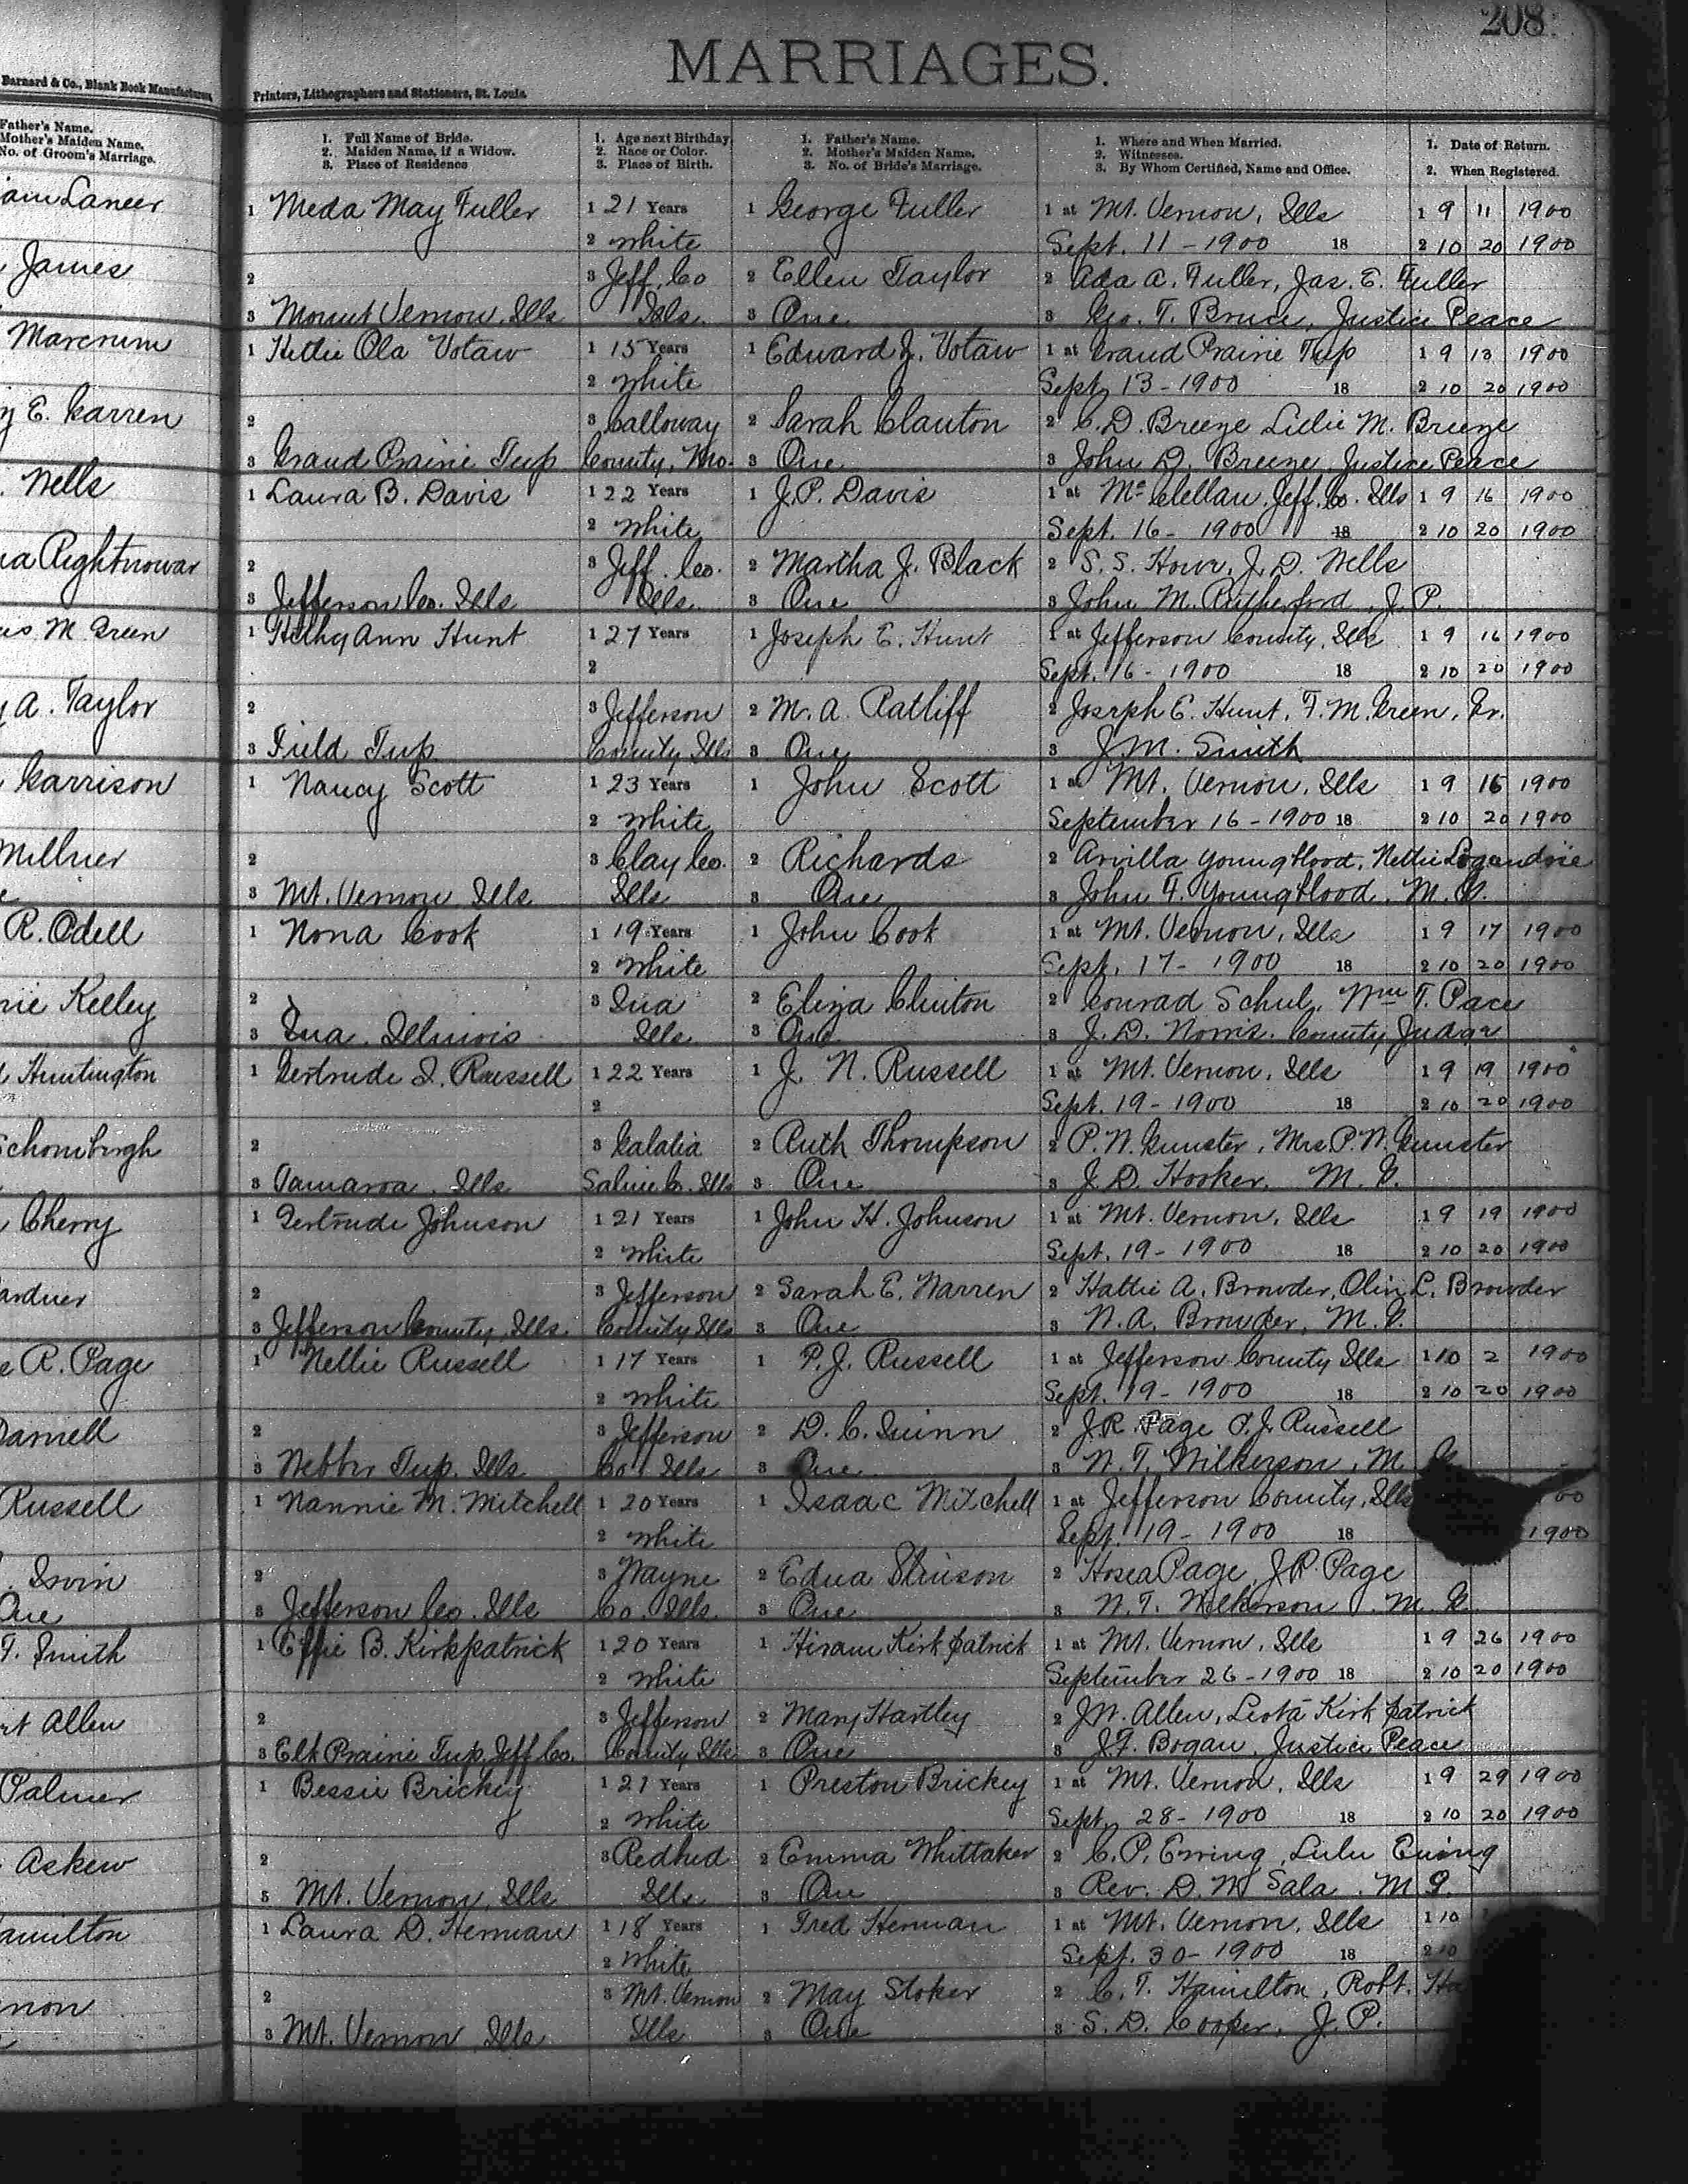 208
MARRIAGES.
Barnard & Co., Blank Book Manufacturers,
Printers, Lithographers and Stationers, St. Louis.
Father's Name.
Mother's Maiden Name.
No. of Groom's Marriage.
1. Full Name of Bride.
2. Maiden Name, if a Widow.
3. Place of Residence
1. Age next Birthday
2. Race or Color.
3. Place of Birth.
1. Father's Name.
2. Mother's Maiden Name.
3. No. of Bride's Marriage.
1. Where and When Married.
2. Witnesses.
3. By Whom Certified, Name and Office.
1. Date of Return.
2. When Registered.
Lancer 1 Meda May Fuller 1 21 Years 1 George Fuller 1 at Mt. Vernon, Ills 1 9 11 1900
2 White Sept. 11 - 1900 18 2 10 20 1900
James 2 3 Jeff. Co 2 Ellen Taylor 2 Ada A. Fuller, Jas. E. Fuller
3 Mount Vernon, Ills Ills. 3 One 3 Geo. T. Bruce, Justice Peace
Marcrum 1 Hettie Ola Votaw 1 15 Years 1 Edward J. Votaw 1 at Grand Prairie Tup 1 9 13 1900
2 White Sept. 13 - 1900 18 2 10 20 1900
E. Garren 2 3 Calloway 2 Sarah Clanton 2 C. D. Breeze Lillie M. Breeze
3 Grand Prairie Tup County, Mo. 3 One 3 John D. Breeze, Justice Peace
Wells 1 Laura B. Davis 1 22 Years 1 J. P. Davis 1 at McClellan, Jeff. Co. Ills 1 9 16 1900
2 White Sept. 16 - 1900 18 2 10 20 1900
Rightnowar 2 3 Jeff. Co. 2 Martha J. Black 2 S. S. Howe, J. D. Wells
3 Jefferson Co. Ills Ills. 3 One 3 John M. Rutherford, J. P.
M Green 1 Ann Hunt 1 27 Years 1 Joseph E. Hunt 1 at Jefferson County, Ills 1 9 16 1900
2 Sept. 16 - 1900 18 2 10 20 1900
A. Taylor 2 3 Jefferson 2 M. A. Ratliff 2 Joseph E. Hunt, F. M. Green, Jr.
3 Field Tup. County Ills 3 One 3 J. M. Smith
Garrison 1 Nancy Scott 1 23 Years 1 John Scott 1 at Mt. Vernon, Ills 1 9 16 1900
2 White September 16 - 1900 18 2 10 20 1900
Millner 2 3 Clay Co. 2 Richards 2 Arvilla Youngblood, Nettie
3 Mt. Vernon, Ills Ills 3 One 3 John F. Youngblood, M. G.
R. Odell 1 Nona Cook 1 19 Years 1 John Cook 1 at Mt. Vernon, Ills 1 9 17 1900
2 White Sept. 17 - 1900 18 2 10 20 1900
Kelley 2 3 Ina 2 Eliza Clinton 2 Conrad Schul, Wm T. Pace
3 Ina, Illinois Ills 3 One 3 J. D. Norris, County Judge
Huntington 1 Gertrude I. Russell 1 22 Years 1 J. N. Russell 1 at Mt. Vernon, Ills 1 9 19 1900
2 Sept. 19 - 1900 18 2 10 20 1900
2 3 Galatia 2 Ruth Thompson 2 P. W. Gunster, Mrs. P. W. Gunster
3 Tamaroa, Ills Saline Co. Ills 3 One 3 J. D. Hooker, M. G.
Cherry 1 Gertrude Johnson 1 21 Years 1 John H. Johnson 1 at Mt. Vernon, Ills 1 9 19 1900
2 White Sept. 19 - 1900 18 2 10 20 1900
2 3 Jefferson 2 Sarah E. Warren 2 Hattie A. Browder, Olin L. Browder
3 Jefferson County, Ills. County Ills 3 One 3 N. A. Browder, M. G.
R. Page 1 Nellie Russell 1 17 Years 1 P. J. Russell 1 at Jefferson County Ills 1 10 2 1900
2 White Sept. 19 - 1900 18 2 10 20 1900
Darnell 2 3 Jefferson 2 D. C. Quinn 2 J. R. Page P. J. Russell
3 Webber Tup. Ills Co. Ills 3 One 3 W. T. Wilkerson, M. G.
Russell 1 Nannie M. Mitchell 1 20 Years 1 Isaac Mitchell 1 at Jefferson County, Ills
2 White Sept. 19 - 1900 18 1900
Irvin 2 3 Wayne 2 Edna Stinson 2 Hosea Page, J. R. Page
One 3 Jefferson Co. Ills Co. Ills. 3 One 3 W. T. Wilkerson, M. G.
T. Smith 1 Effie B. Kirkpatrick 1 20 Years 1 Hiram Kirkpatrick 1 at Mt. Vernon, Ills 1 9 26 1900
2 White September 26 - 1900 18 2 10 20 1900
Allen 2 3 Jefferson 2 Mary Hartley 2 J. W. Allen, Leota Kirkpatrick
3 Elk Prairie Tup, Jeff Co. County Ills 3 One 3 J. F. Bogan, Justice Peace
Palmer 1 Bessie Brickey 1 21 Years 1 Preston Brickey 1 at Mt. Vernon, Ills 1 9 29 1900
2 White Sept. 28 - 1900 18 2 10 20 1900
Askew 2 3 Redbud 2 Emma Whittaker 2 C. P. Ewing, Lulu Ewing
3 Mt. Vernon, Ills Ills. 3 One 3 Rev. D. M. Sala, M G.
Hamilton 1 Laura D. Herman 1 18 Years 1 Fred Herman 1 at Mt. Vernon, Ills 1 10
2 White Sept. 30 - 1900 18 2 10
2 3 Mt. Vernon 2 May Stoker 2 C. T. Hamilton, Robt.
3 Mt. Vernon, Ills Ills 3 One 3 S. D. Cooper, J. P.